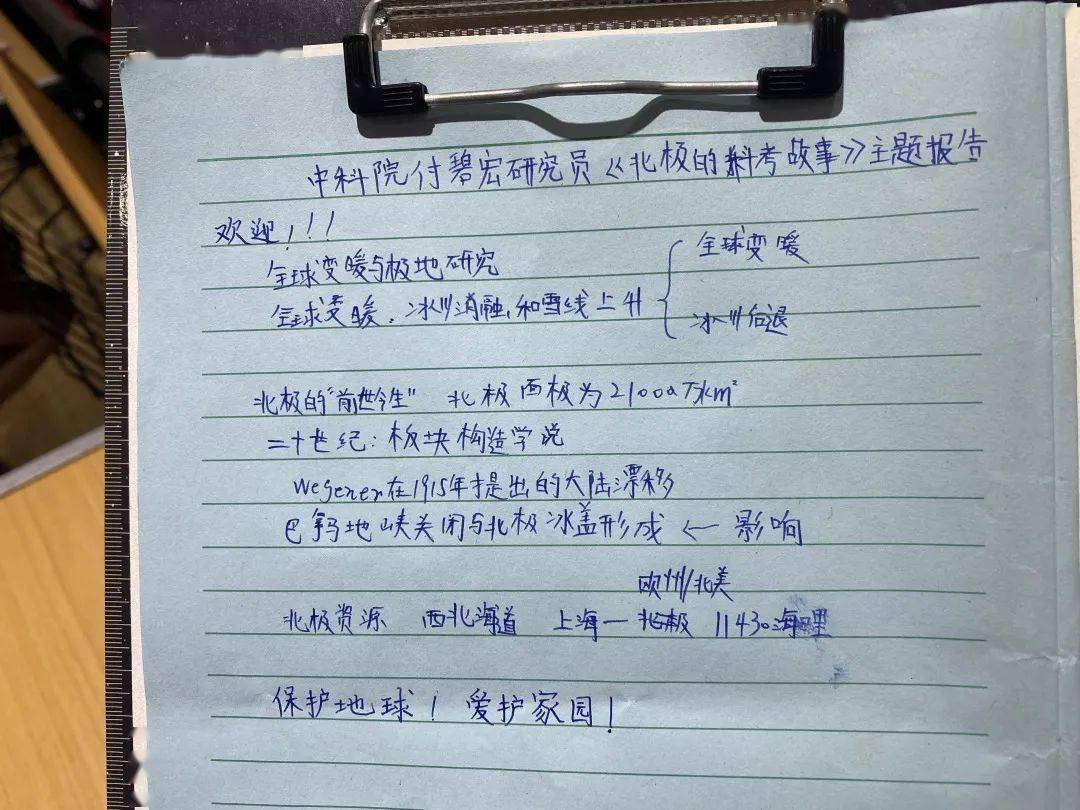 中科院付碧宏研究员《北极的科考故事》主题报告
欢迎!!!
全球变暖与极地研究
全球变暖、冰川消融,和雪线上升 { 全球变暖
冰川后退
北极的"前世今生" 北极西极为2100万km²
二十世纪:板块构造学说
Wegener在1915年提出的大陆漂移
巴拿马地峡关闭与北极冰盖形成 ← 影响
欧州/北美
北极资源 西北海道 上海一北极 11430海哩
保护地球! 爱护家园!